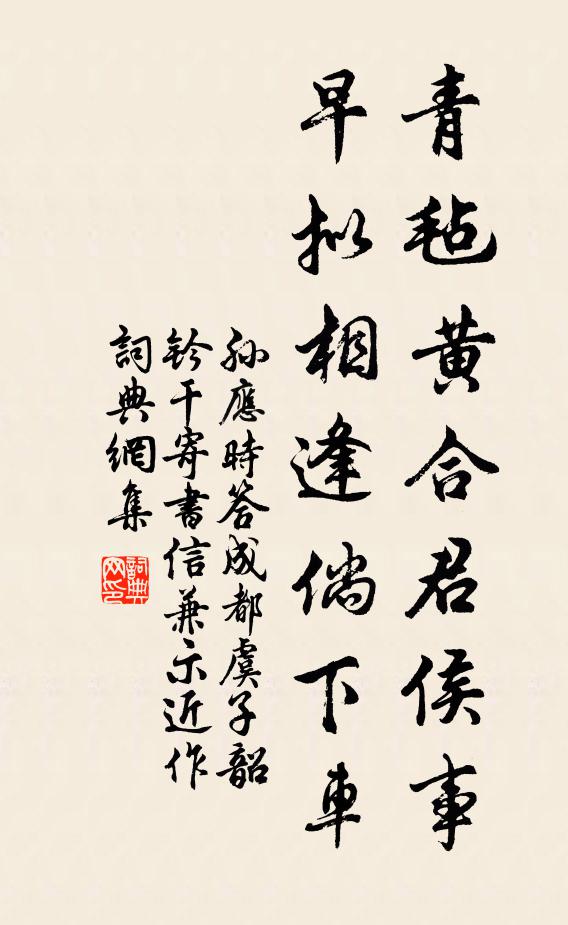 青氈黃合君侯事
早擬相逢倘下車
孫應時答成都虞子韶
鈐干寄書信兼示近作
詞典網集
詞典網印